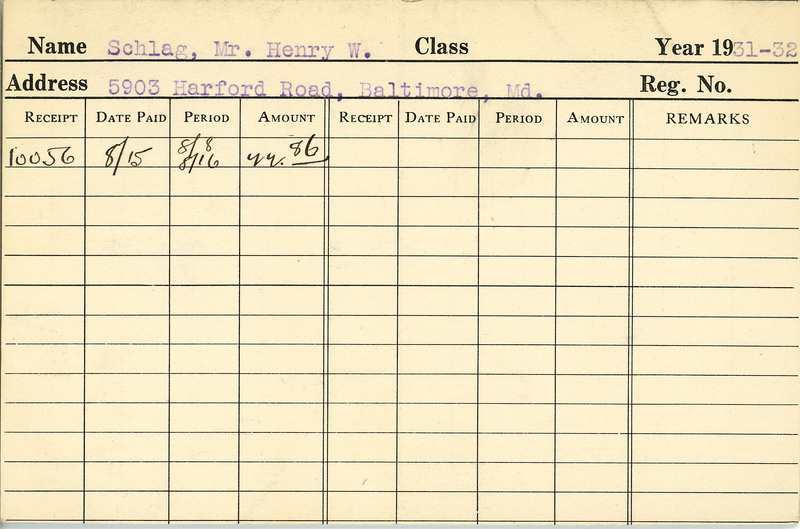 Name Schlag, Mr. Henry W. Class Year 1931-32
Address 5903 Harford Road, Baltimore, Md. Reg. No.
RECEIPT DATE PAID PERIOD AMOUNT RECEIPT DATE PAID PERIOD AMOUNT REMARKS
10056 8/15 8/8 8/16 44.86